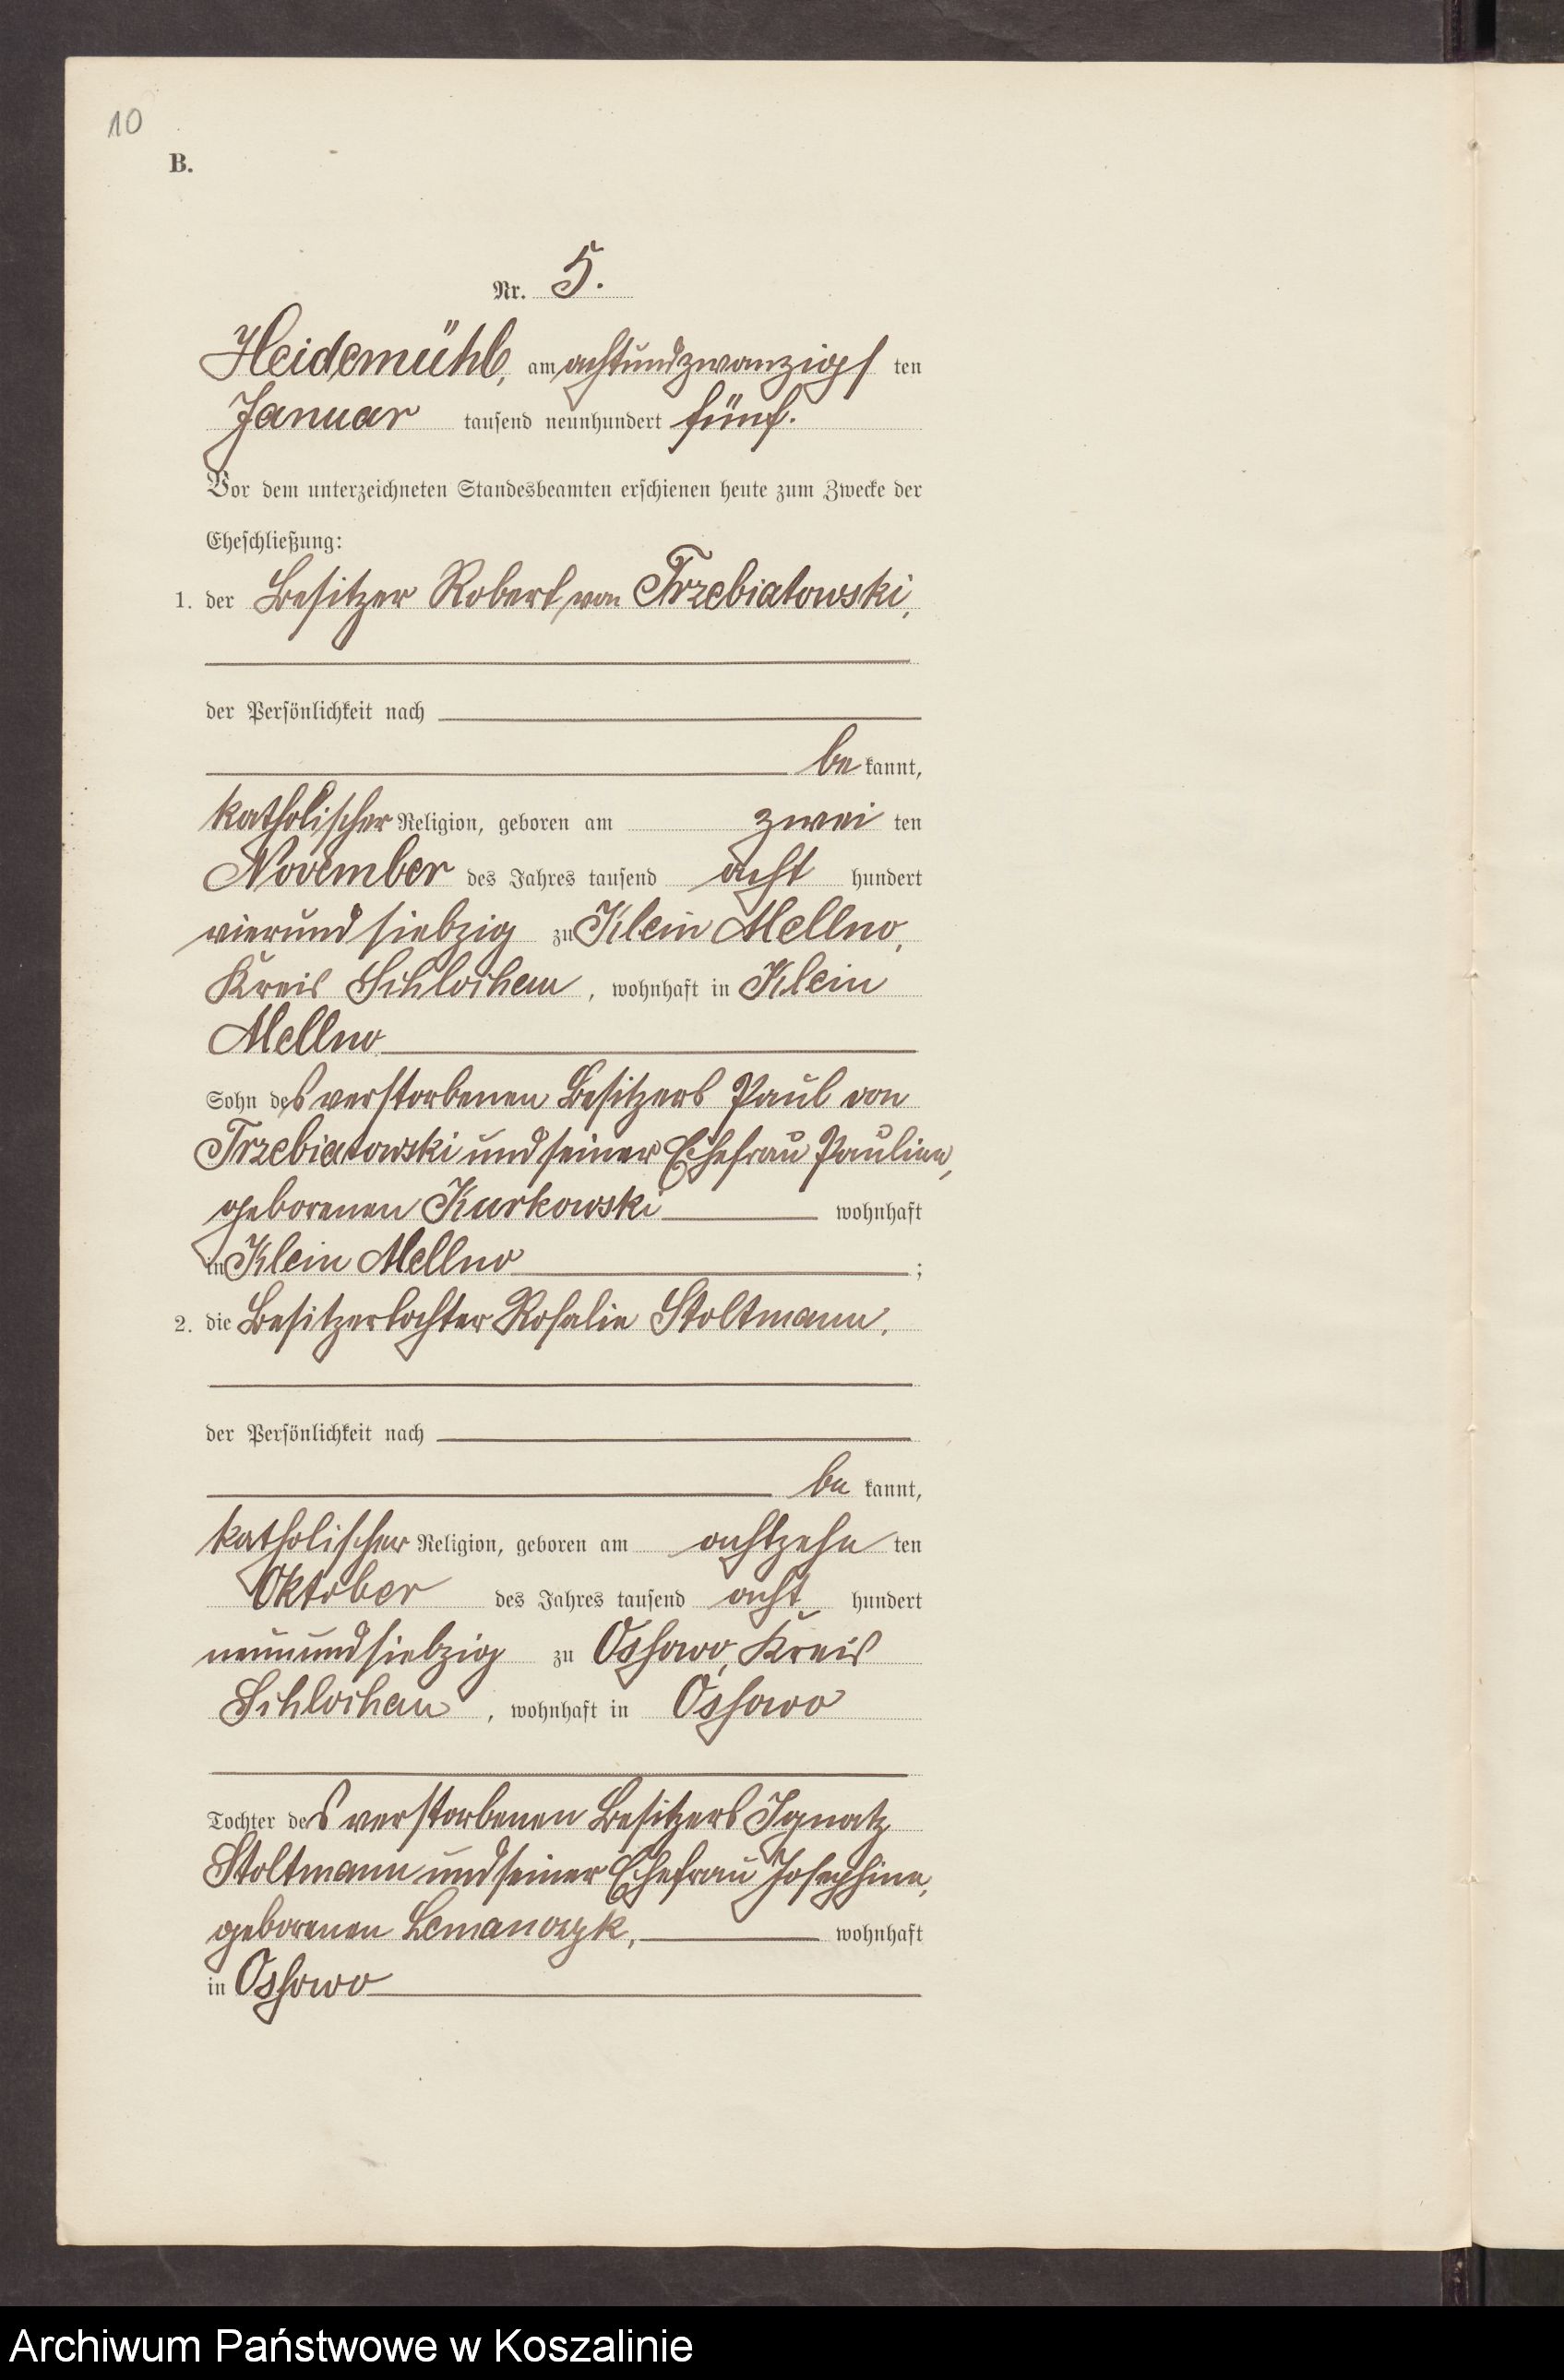 10
B.
Nr. 5.
Heidemühl, am achtundzwanzigsten
Januar tausend neunhundert fünf.
Vor dem unterzeichneten Standesbeamten erschienen heute zum Zwecke der
Eheschließung:
1. der Besitzer Robert von Trzebiatowski,
der Persönlichkeit nach
be kannt,
katholischer Religion, geboren am zwei ten
November des Jahres tausend acht hundert
vierundsiebzig zu Klein Mellno,
Kreis Schlochau, wohnhaft in Klein
Mellno
Sohn des verstorbenen Besitzers Paul von
Trzebiatowski und seiner Ehefrau Pauline,
geborenen Kurkowski wohnhaft
in Klein Mellno ;
2. die Besitzertochter Rosalie Stoltmann,
der Persönlichkeit nach
be kannt,
katholischer Religion, geboren am achtzehn ten
Oktober des Jahres tausend acht hundert
neunundsiebzig zu Ossowo, Kreis
Schlochau, wohnhaft in Ossowo
Tochter des verstorbenen Besitzers Ignatz
Stoltmann und seiner Ehefrau Josephine,
geborenen Lemanczyk, wohnhaft
in Ossowo
Archiwum Państwowe w Koszalinie